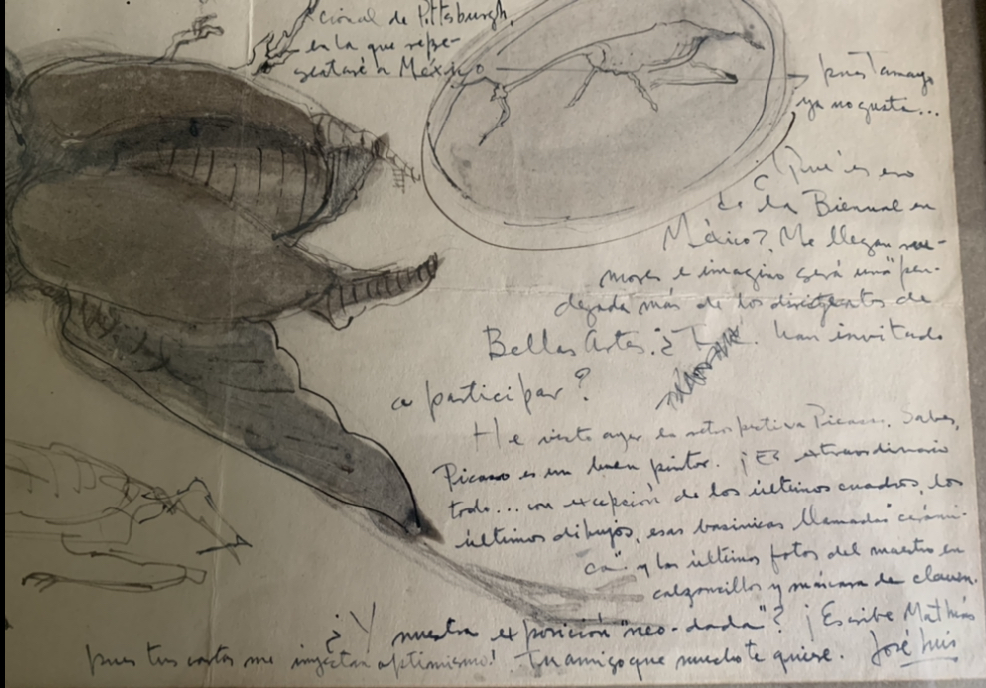 cional de Pittsburgh,
en la que repre-
sentaré a México
pues Tamayo
ya no gusta...
¿Qué es eso
de la Biennal en
México? Me llegan ru-
mores e imagino será una "pen-
dejada más de los dirigentes de
Bellas Artes. ¿Te han invitado
a participar?
He visto ayer la retrospectiva Picasso. Sabes,
Picasso es un buen pintor. ¡Es extraordinario
todo... con excepción de los últimos cuadros, los
últimos dibujos, esas basinicas llamadas "cerámi-
ca" y las últimas fotos del maestro en
calzoncillos y máscara de clown.
¿Y nuestra exposición "neo-dada"? ¡Escribe Mathias
pues tus cartas me inyectan optimismo! Tu amigo que mucho te quiere. José Luis